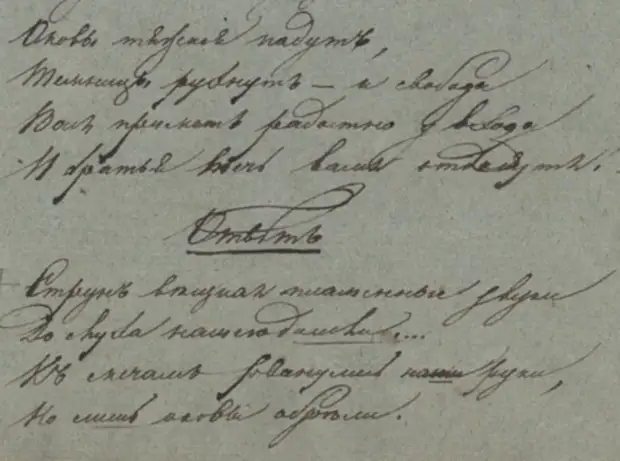 Оковы тяжскіе падутъ,
Темницы рухнутъ – и свобода
Васъ приметъ радостно у входа
И братья мечь вамъ отдадутъ.
Отвѣтъ
Струнъ вѣщихъ пламенные звуки
До слуха нашего дошли....
Къ мечамъ рванулись наши руки,
Но лишь оковы обрѣли.